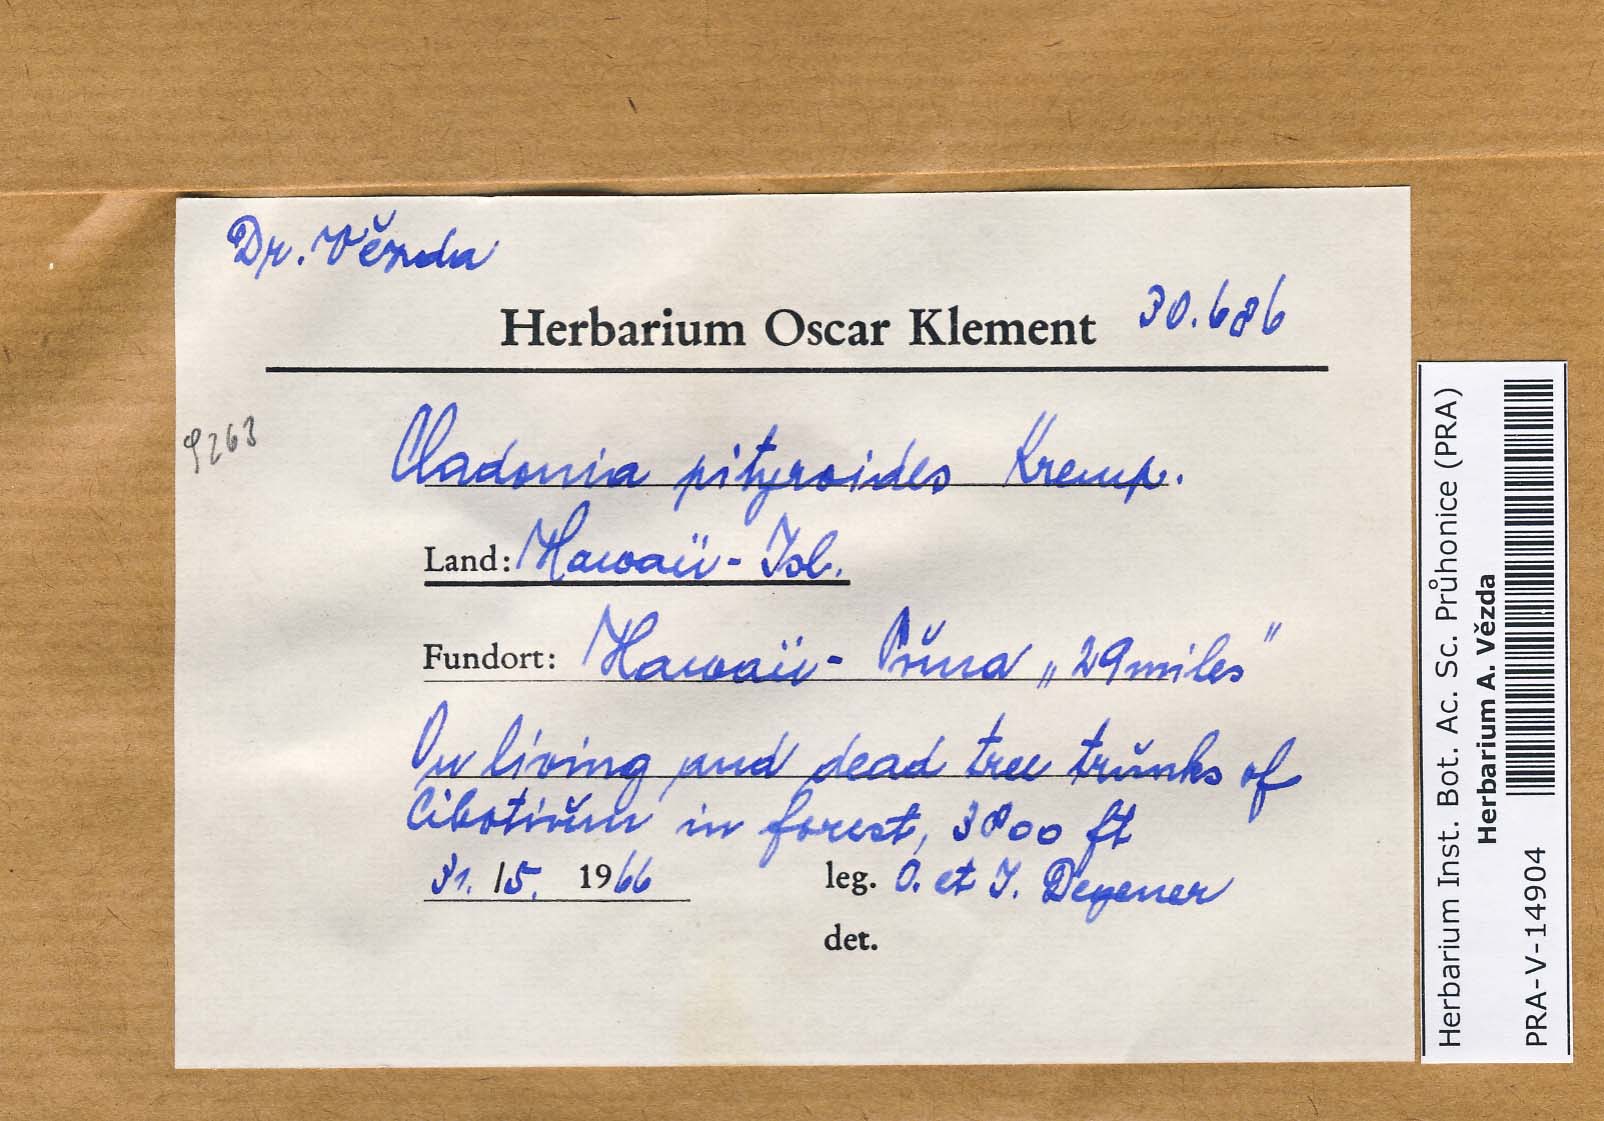 Dr. Vězda
Herbarium Oscar Klement 30.686
9263
Cladonia pityroides Kremp.
Land: Hawaii - Isl.
Fundort: Hawaii - Pŭna „29 miles"
On living and dead tree trŭnks of
Cibotiŭm in forest, 3800 ft
31. /5. 1966 leg. O. et I. Degener
det.
Herbarium Inst. Bot. Ac. Sc. Průhonice (PRA)
Herbarium A. Vězda
PRA-V-14904